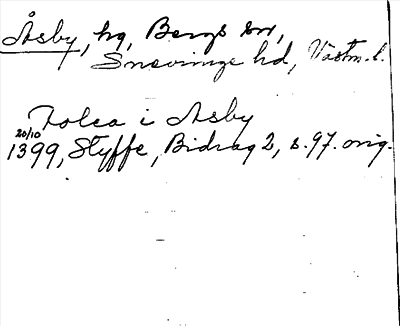 Åsby, hg, Bergs sn,
Snevringe hd, Västm. l.
Folca i Asby
20/10
1399, Styffe, Bidrag 2, s. 97. orig.